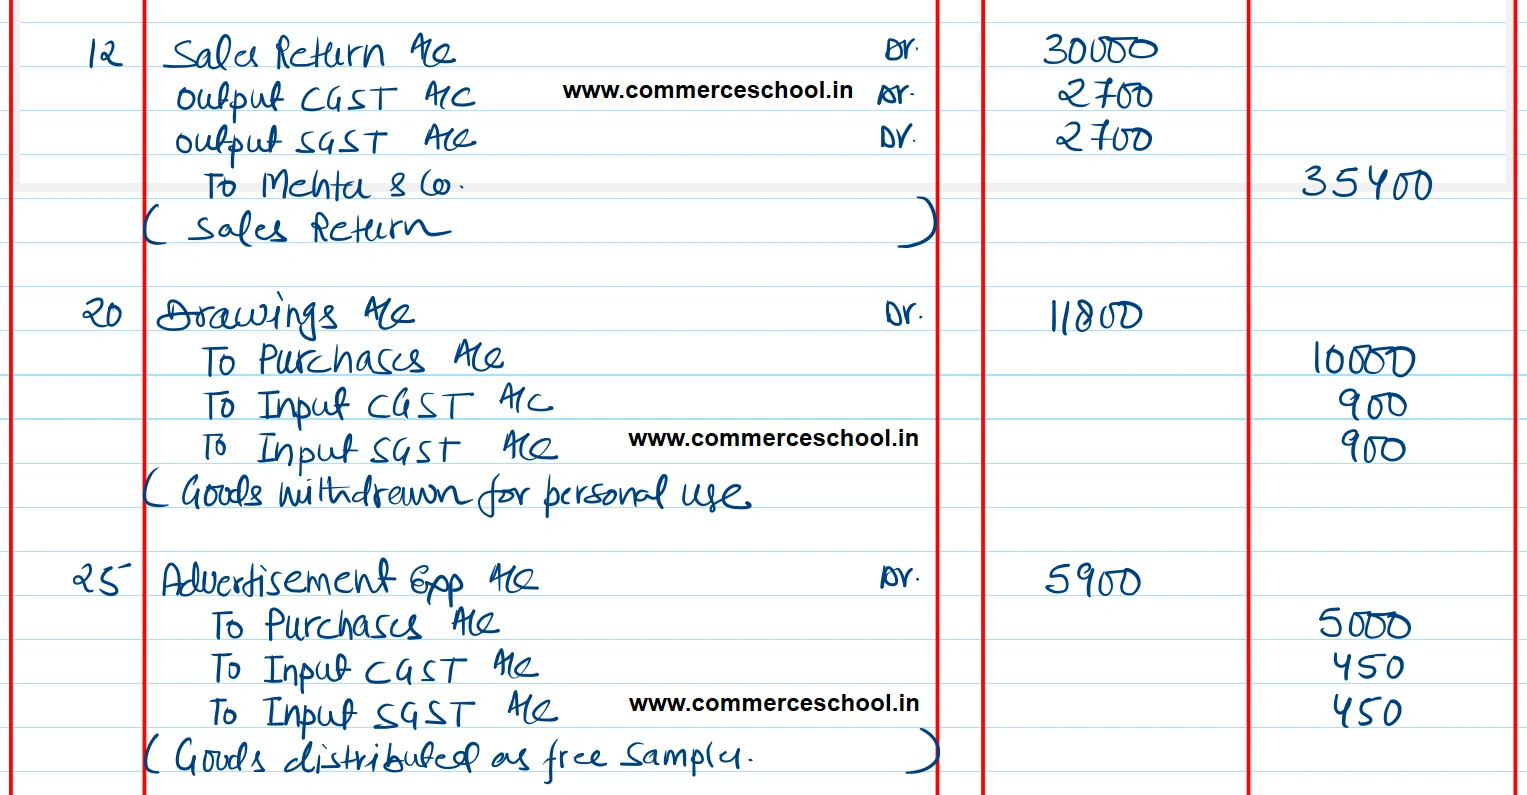 12 Sales Return A/c Dr. 30000
Output CGST A/C www.commerceschool.in Dr. 2700
Output SGST A/c Dr. 2700
To Mehta & Co. 35400
( Sales Return )
20 Drawings A/c Dr. 11800
To Purchases A/c 10000
To Input CGST A/C 900
To Input SGST A/c www.commerceschool.in 900
( Goods withdrawn for personal use
25 Advertisement Exp A/c Dr. 5900
To Purchases A/c 5000
To Input CGST A/c 450
To Input SGST A/c www.commerceschool.in 450
( Goods distributed as free Sample. )